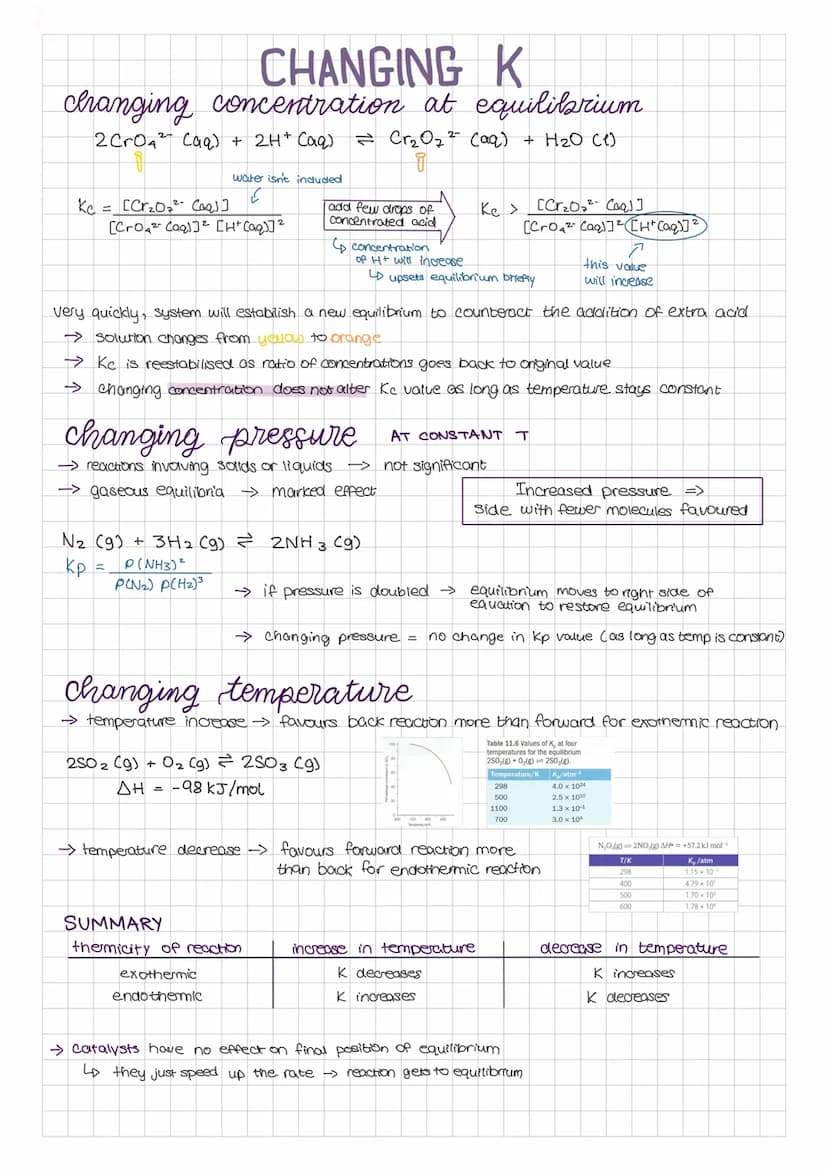 CHANGING K
changing concentration at equilibrium
2CrO₄²⁻ (aq) + 2H⁺ (aq) ⇌ Cr₂O₇²⁻ (aq) + H₂O (l)
water isn't included
Kc = [Cr₂O₇²⁻ (aq)] / [CrO₄²⁻ (aq)]² [H⁺(aq)]²
add few drops of
concentrated acid
Kc > [Cr₂O₇²⁻ (aq)] / [CrO₄²⁻ (aq)]² [H⁺(aq)]²
↳ concentration
of H⁺ will increase
↳ upsets equilibrium briefly
this value
will increase
very quickly, system will establish a new equilibrium to counteract the addition of extra acid
→ solution changes from yellow to orange
→ Kc is reestabilised as ratio of concentrations goes back to original value
→ changing concentration does not alter Kc value as long as temperature stays constant
changing pressure AT CONSTANT T
→ reactions involving solids or liquids → not significant
→ gaseous equilibria → marked effect
Increased pressure ⇒
side with fewer molecules favoured
N₂ (g) + 3H₂ (g) ⇌ 2NH₃ (g)
Kp = P(NH₃)² / P(N₂) P(H₂)³
→ if pressure is doubled → equilibrium moves to right side of
equation to restore equilibrium
→ changing pressure = no change in Kp value (as long as temp is constant)
changing temperature
→ temperature increase → favours back reaction more than forward for exothemic reaction
2SO₂ (g) + O₂ (g) ⇌ 2SO₃ (g)
ΔH = -98 kJ/mol
Table 11.6 Values of Kp at four
temperatures for the equilibrium
2SO₂(g) + O₂(g) ⇌ 2SO₃(g).
Temperature/K Kp/atm⁻¹
298 4.0 × 10²⁴
500 2.5 × 10¹⁰
1100 1.3 × 10⁻¹
700 3.0 × 10⁴
→ temperature decrease → favours forward reaction more
than back for endothermic reaction
N₂O₄(g) ⇌ 2NO₂(g) ΔH° = +57.2 kJ mol⁻¹
T/K Kp/atm
298 1.15 × 10⁻¹
400 4.79 × 10¹
500 1.70 × 10³
600 1.78 × 10⁴
SUMMARY
themicity of reaction increase in temperature decrease in temperature
exothermic K decreases K increases
endothermic K increases K decreases
→ catalysts have no effect on final position of equilibrium
↳ they just speed up the rate → reaction gets to equilibrium